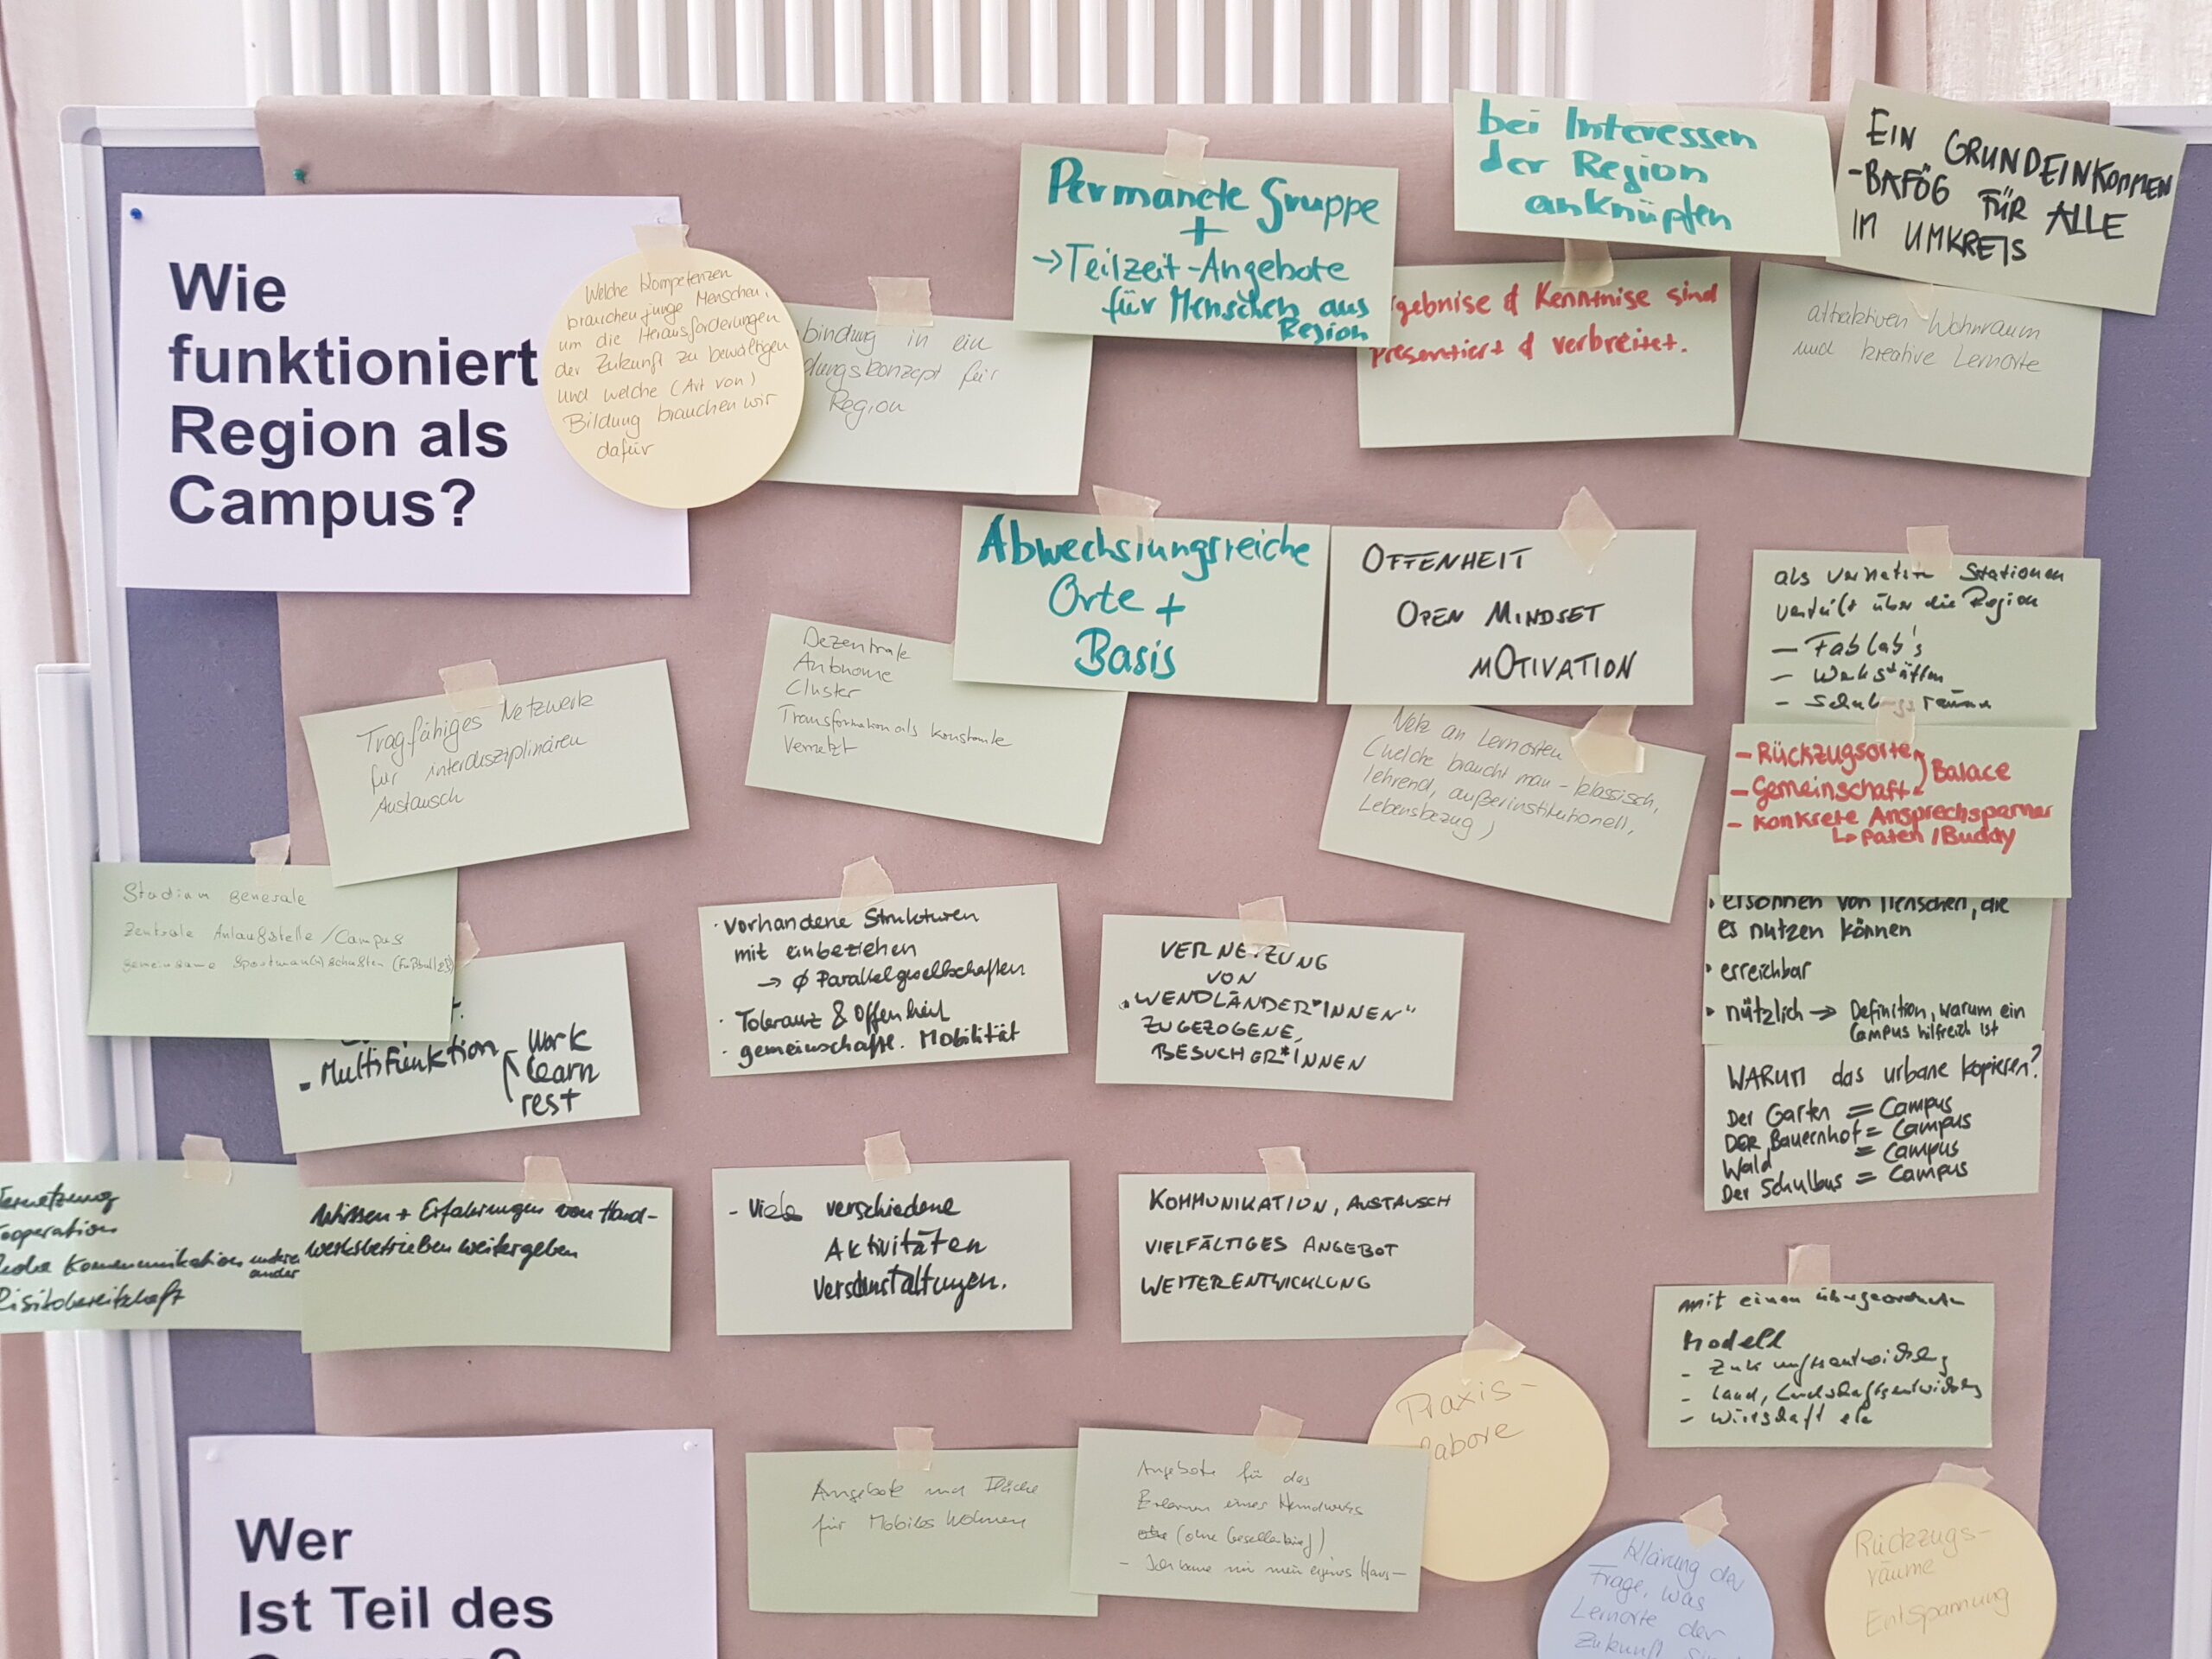 Wie
funktioniert
Region als
Campus?
Welche Kompetenzen
brauchen junge Menschen,
um die Herausforderungen
der Zukunft zu bewältigen
und welche (Art von)
Bildung brauchen wir
dafür
bindung in ein
dungskonzept für
Region
Permanete Gruppe
+
→ Teilzeit-Angebote
für Menschen aus
Region
bei Interessen
der Region
anknüpfen
EIN GRUNDEINKOMMEN
-BAFÖG FÜR ALLE
IM UMKREIS
gebnise & Kenntnise sind
presentiert & verbreitet.
attraktiven Wohnraum
und kreative Lernorte
Abwechslungsreiche
Orte +
Basis
OFFENHEIT
OPEN MINDSET
MOTIVATION
als vernetzte Stationen
verteilt über die Region
- FabLab's
- Werkstätten
- Schulungsräume
Tragfähiges Netzwerk
für interdisziplinären
Austausch
Dezentrale
Autonome
Cluster
Transformation als Konstante
Vernetzt
Netz an Lernorten
(welche braucht man - klassisch,
lehrend, außerinstitutionell,
Lebensbezug)
- Rückzugsorte
- Gemeinschaft
Balace
- Konkrete Ansprechsparner
↳ Paten / Buddy
Studium generale
Zentrale Anlaufstelle / Campus
gemeinsame
- Multifunktion
Work
learn
rest
· vorhandene Strukturen
mit einbeziehen
→ ∅ Parallelgesellschaften
· Toleranz & Offenheit
· gemeinschaftl. Mobilität
VERNETZUNG
VON
„WENDLÄNDER*INNEN"
ZUGEZOGENE,
BESUCHER*INNEN
• ersonnen von Menschen, die
es nutzen können
• erreichbar
• nützlich → Definition, warum ein
Campus hilfreich ist
WARUM das urbane kopieren?
Der Garten = Campus
DER Bauernhof = Campus
Wald = Campus
Der Schulbus = Campus
ernetzung
ooperation
Kommunikation
Risikobereitschaft
Wissen + Erfahrungen von Hand-
werksbetrieben weitergeben
- Viele verschiedene
Aktivitäten
Veranstaltungen.
KOMMUNIKATION, AUSTAUSCH
VIELFÄLTIGES ANGEBOT
WEITERENTWICKLUNG
mit einem übergeordneten
Modell
- Zukunftsentwicklung
- Land, Landschaftsentwicklung
- Wirtschaft etc
Wer
Ist Teil des
Angebote und Fläche
für Mobiles Wohnen
Angebote für das
Erlernen eines Handwerks
(ohne Gesellenbrief)
- Ich baue mir mein eigenes Haus -
Praxis-
labore
Klärung der
Frage, was
Lernorte der
Zukunft
Rückzugs-
räume
Entspannung